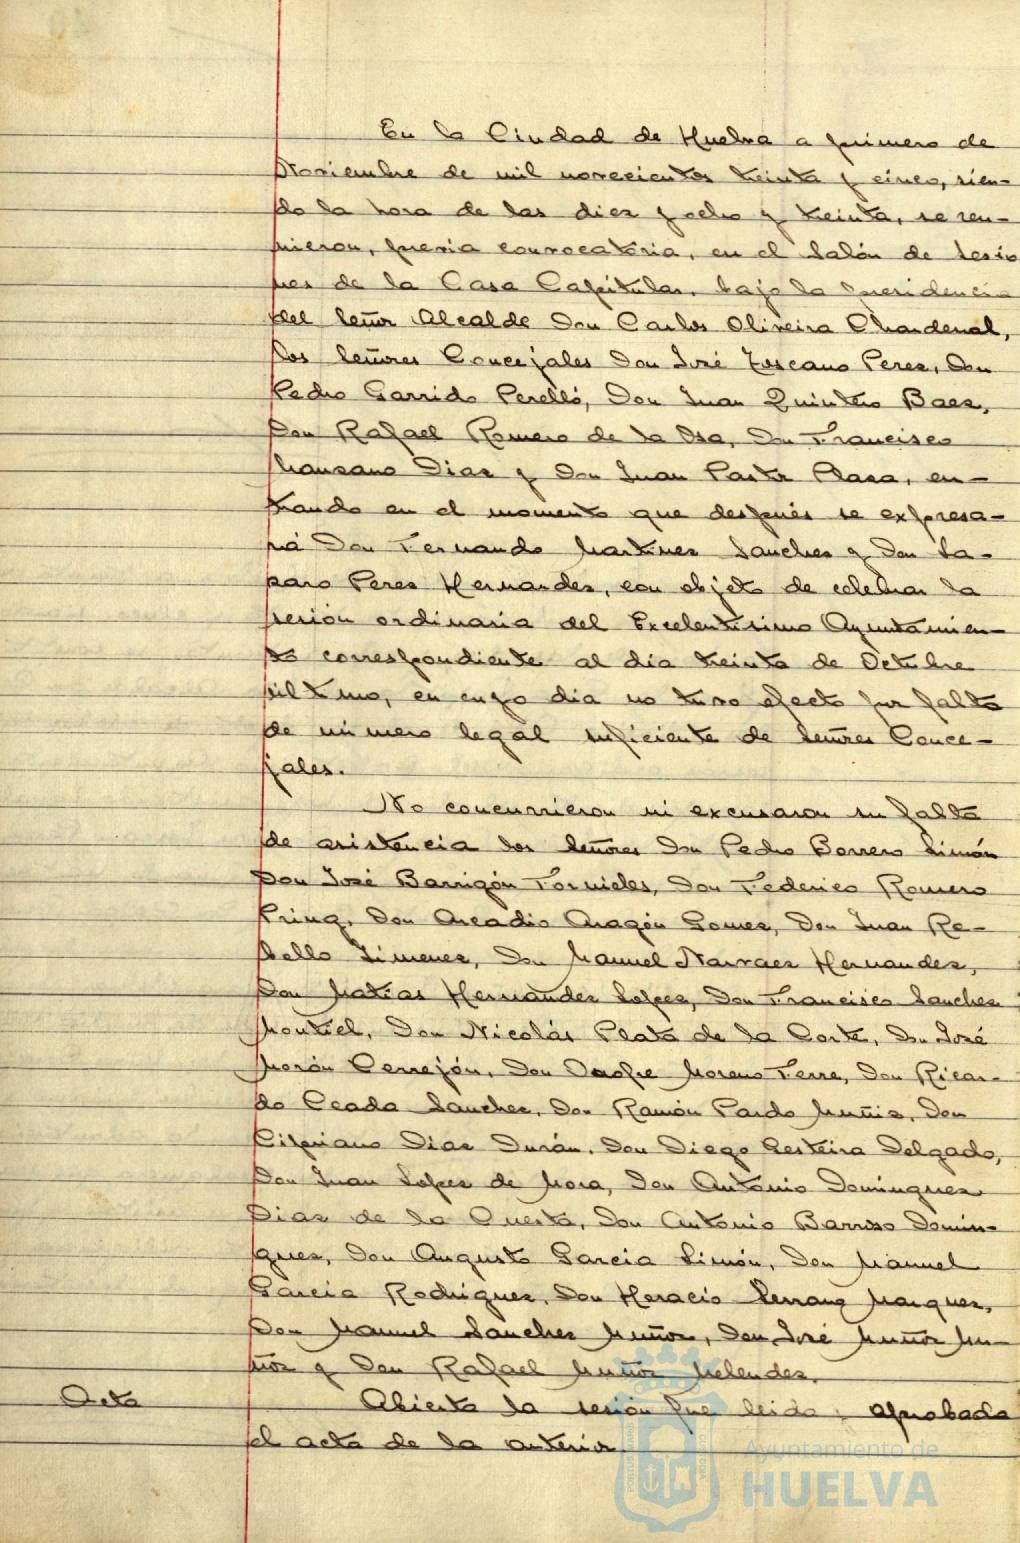 En la Ciudad de Huelva a primero de
Noviembre de mil novecientos treinta y cinco, sien-
do la hora de las diez y ocho y treinta, se reu-
nieron, previa convocatoria, en el Salón de Sesio
nes de la Casa Capitular, bajo la presidencia
del Señor Alcalde Don Carlos Oliveira Chardenal,
los Señores Concejales Don José Toscano Perez, Don
Pedro Garrido Perelló, Don Juan Quintero Baez,
Don Rafael Romero de la Osa, Don Francisco
Manzano Diaz y Don Juan Pastor Plaza, en-
trando en el momento que después se expresa-
rá Don Fernando Martinez Sanchez y Don La-
zaro Perez Hernandez, con objeto de celebrar la
sesión ordinaria del Excelentísimo Ayuntamien-
to correspondiente al día treinta de Octubre
último, en cuyo día no tuvo efecto por falta
de número legal suficiente de Señores Conce-
jales.
No concurrieron ni excusaron su falta
de asistencia los Señores Don Pedro Borrero Limón
Don José Barrigón Fornieles, Don Federico Romero
Don Arcadio Aragón Gomez, Don Juan Re-
bollo Jimenez, Don Manuel Narvaez Hernandez,
Don Matias Hernandez Lopez, Don Francisco Sanchez
Montiel, Don Nicolás Plata de la Corte, Don José
Morón Cerrejón, Don Onofre Moreno Ferre, Don Ricar-
do Ceada Sanchez, Don Ramón Pardo Muñiz, Don
Cipriano Diaz Durán, Don Diego Gesteira Delgado,
Don Juan Lopez de Mora, Don Antonio Dominguez
Diaz de la Cuesta, Don Antonio Barroso Domin-
guez, Don Augusto Garcia Limón, Don Manuel
Garcia Rodriguez, Don Horacio Marquez,
Don Manuel Sanchez Muñoz, Don José Muñoz Mu-
ñoz y Don Rafael Muñoz Melendez.
Acta Abierta la sesión fue leida y aprobada
el acta de la anterior.
Ayuntamiento de
HUELVA